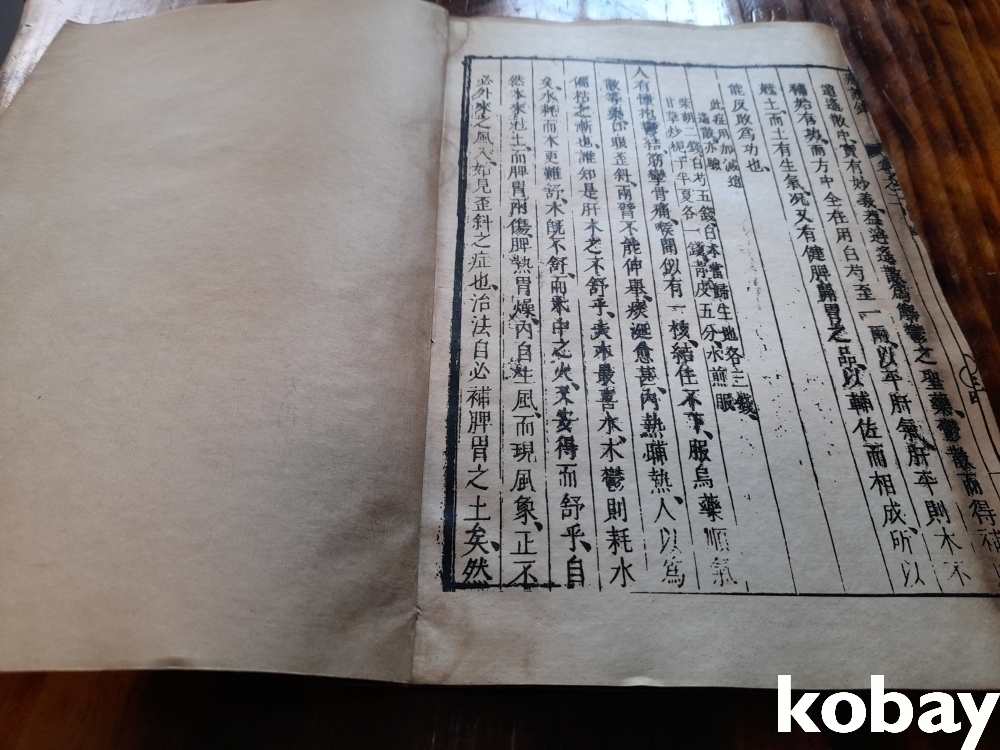 卷之二
逍遙散中實有妙義、蓋逍遙散為解鬱之聖藥、鬱散而得補
補始有功、而方中全在用白芍至一兩、以平肝氣、肝平則木不
尅土、而土有生氣、況又有健脾開胃之品、以輔佐而相成、所以
能反敗為功也、
此症用加減逍
遙散亦驗
柴胡二錢白芍五錢白朮當歸生地各三錢、
甘草炒梔子半夏各一錢青皮五分水煎服
人有懷抱鬱結、筋攣骨痛、喉間似有一核、結住不下、服烏藥順氣
散等藥、口眼歪斜、兩臂不能伸舉、痰涎愈甚、內熱晡熱、人以為
偏枯之漸也、誰知是肝木之不舒乎、夫木最喜水、木鬱則耗水
矣、水耗而木更難舒、木旣不舒、而木中之火、又安得而舒乎、自
然木來尅土、而脾胃兩傷、脾熱胃燥、內自生風、而現風象、正不
必外來之風入、如見歪斜之症也、治法自必補脾胃之土矣、然
kobay